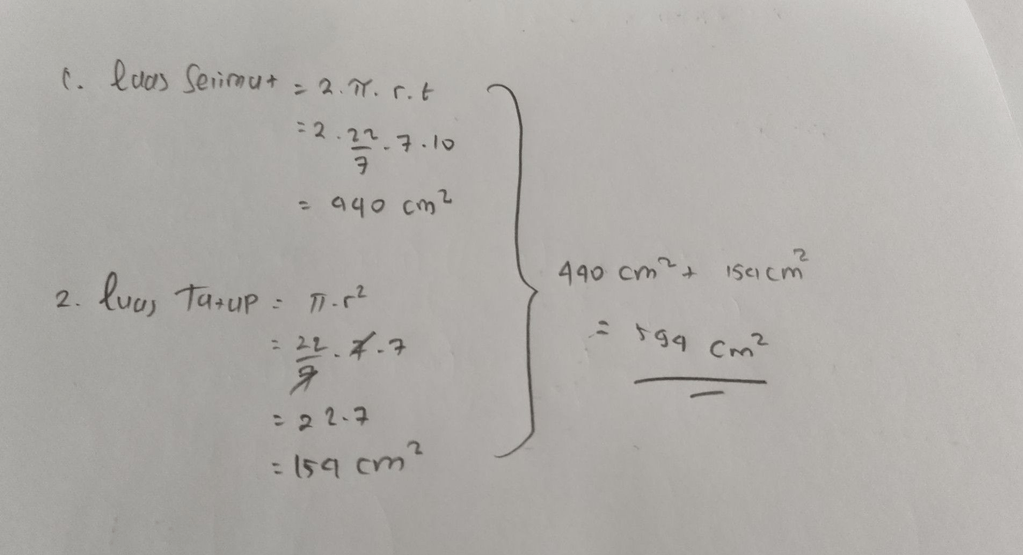 1. luas Selimut = 2.π.r.t
= 2.22/7.7.10
= 440 cm²
2. luas Tutup = π.r²
= 22/7.7.7
= 22.7
= 154 cm²
440 cm² + 154 cm²
= 594 cm²